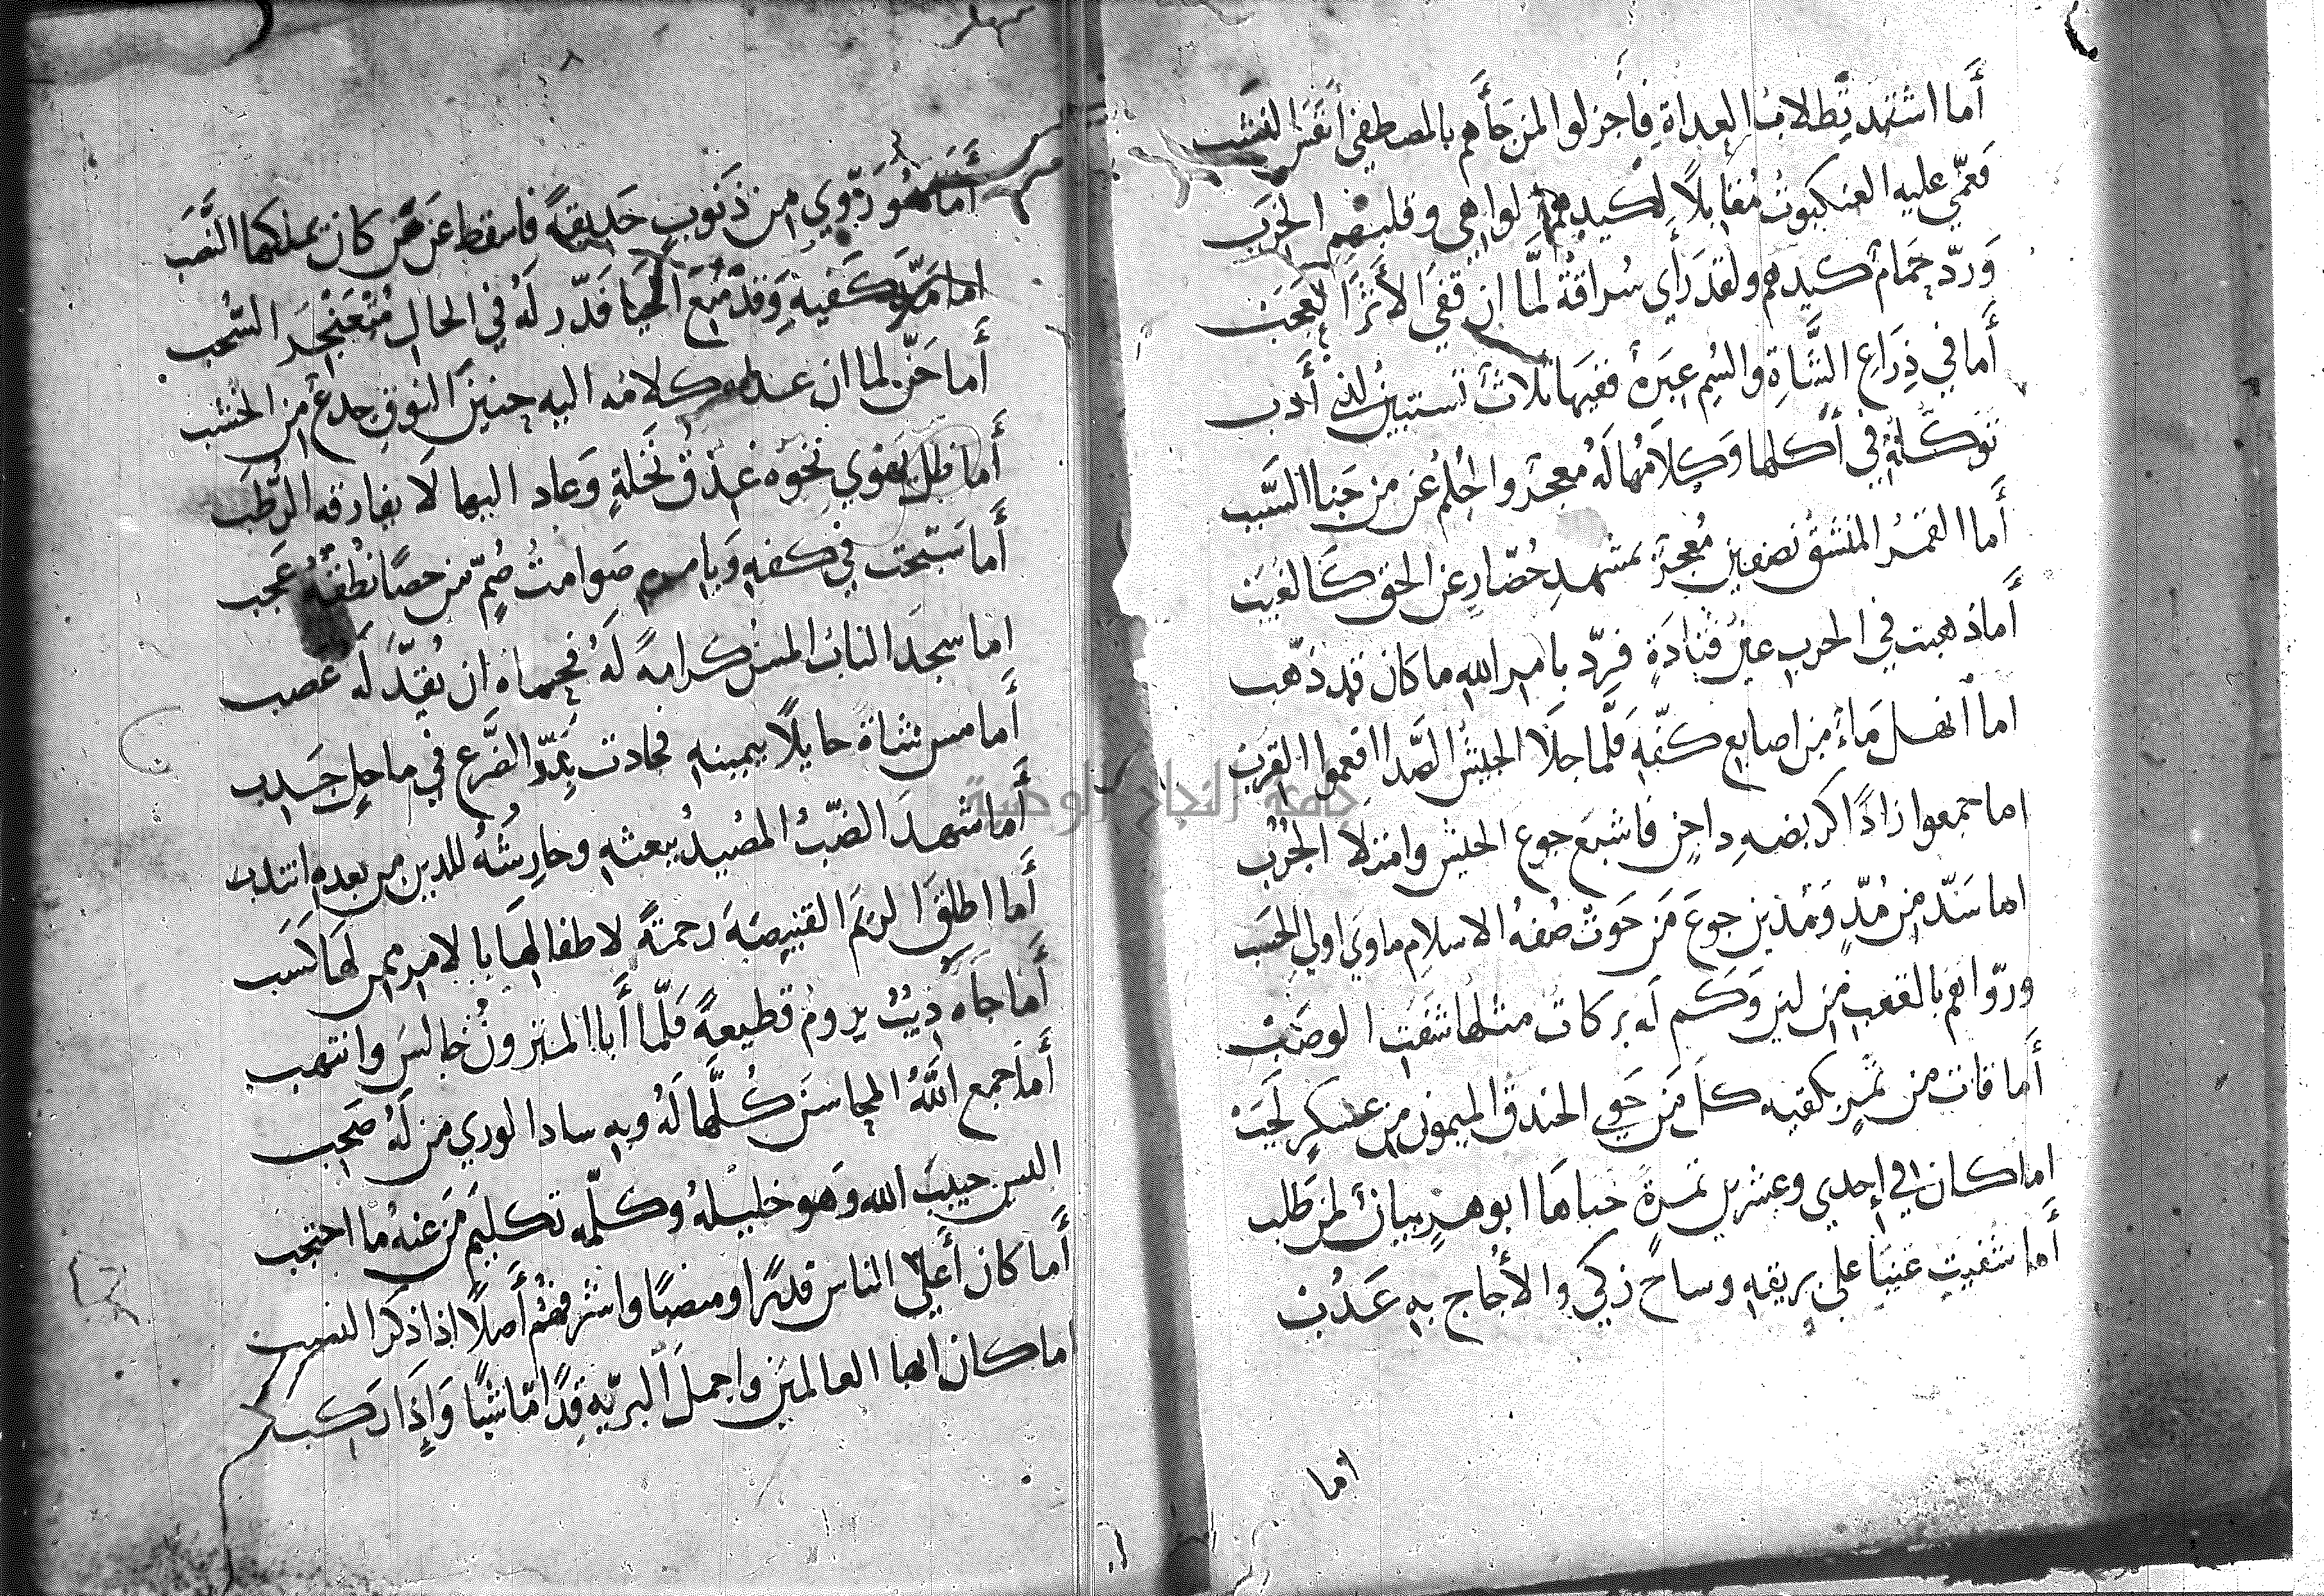 أما اشتد تطلاب العداة فأجزلوا لمن جأهم بالمصطفى أنفس النشب
فعمّي عليه العنكبوت مقابلاً لكيدهم لواهي وقلبهم الخرب
وردّ حمام كيدهم ولقد رأي سراقة لما ان قفي الأثر العجب
أما في ذراع الشاة والسم عبرة ففيها ثلاث تستبين لذي أدب
توكله في أكلها وكلامها له معجز والحلم عن من جنا السبب
أما القمر المنشق نصفين معجز بمشهد حضار عن الحق كالغيب
أما ذهبت في الحرب عين قتادة فردّ بامر الله ما كان قد ذهب
اما انهل ماء من اصابع كفه فلما جلا الجيش الصدا افعموا القرب
اما جمعوا زادًا كربضه داجن فاشبع جوع الجيش وامتلا الجرب
اما سدّ من مدّ ومدين جوع من حوت صفه الاسلام ماوي اولي الحسب
وروّاهم بالقعب من لبن وكم له بركات مثلها شفت الوصب
أما قات من تمر بكفيه كل من حوي الخندق الميمون من عسكر لجب
اما كان في إحدي وعشرين تمرة حباها ابو هر بيان لمن طلب
أما شفيت عينا علي بريقه وساح زكي والأجاج به عذب
اما
أما هو روّي من ذنوب حديقة فاسقط عن من كان يملكها النصب
اما مدّ كفيه وقد منع الحيا فدّر له في الحال مثعنجر السحب
أما حنّ لما ان عداه كلامه اليه حنين النوق جدع من الخشب
أما ظل يهوي نحوه عذق نخلة وعاد اليها لا يفارقه الرطب
أما سبّحت في كفه ويامره صوامت صمّ من حصا نطقه عجب
اما سجد الناب المسن كرامة له فحماه ان يقدّ له عصب
أما مس شاة حايلا بيمينه فجادت بمدّ الضرع في ماحل جدب
أما شهد الضب المصيد ببعثه وحارشه للدين من بعده انتدب
أما اطلق الريم القنيصة رحمة لاطفالها بالامر ممن لها كسب
أما جآه ذيب يروم قطيعة فلما أبا المنزون خالس وانتهب
أما جمع الله المحاسن كلها له وبه ساد الوري من له صحب
اليس حبيب الله وهو خليله وكلّمه تكليم من عنه ما احتجب
أما كان أعلي الناس قدرًا ومنصبًا واشرفهم أصلًا اذا ذكر النسب
اما كان ابها العالمين واجمل البرية قدًّا ماشيًا وإذا ركب